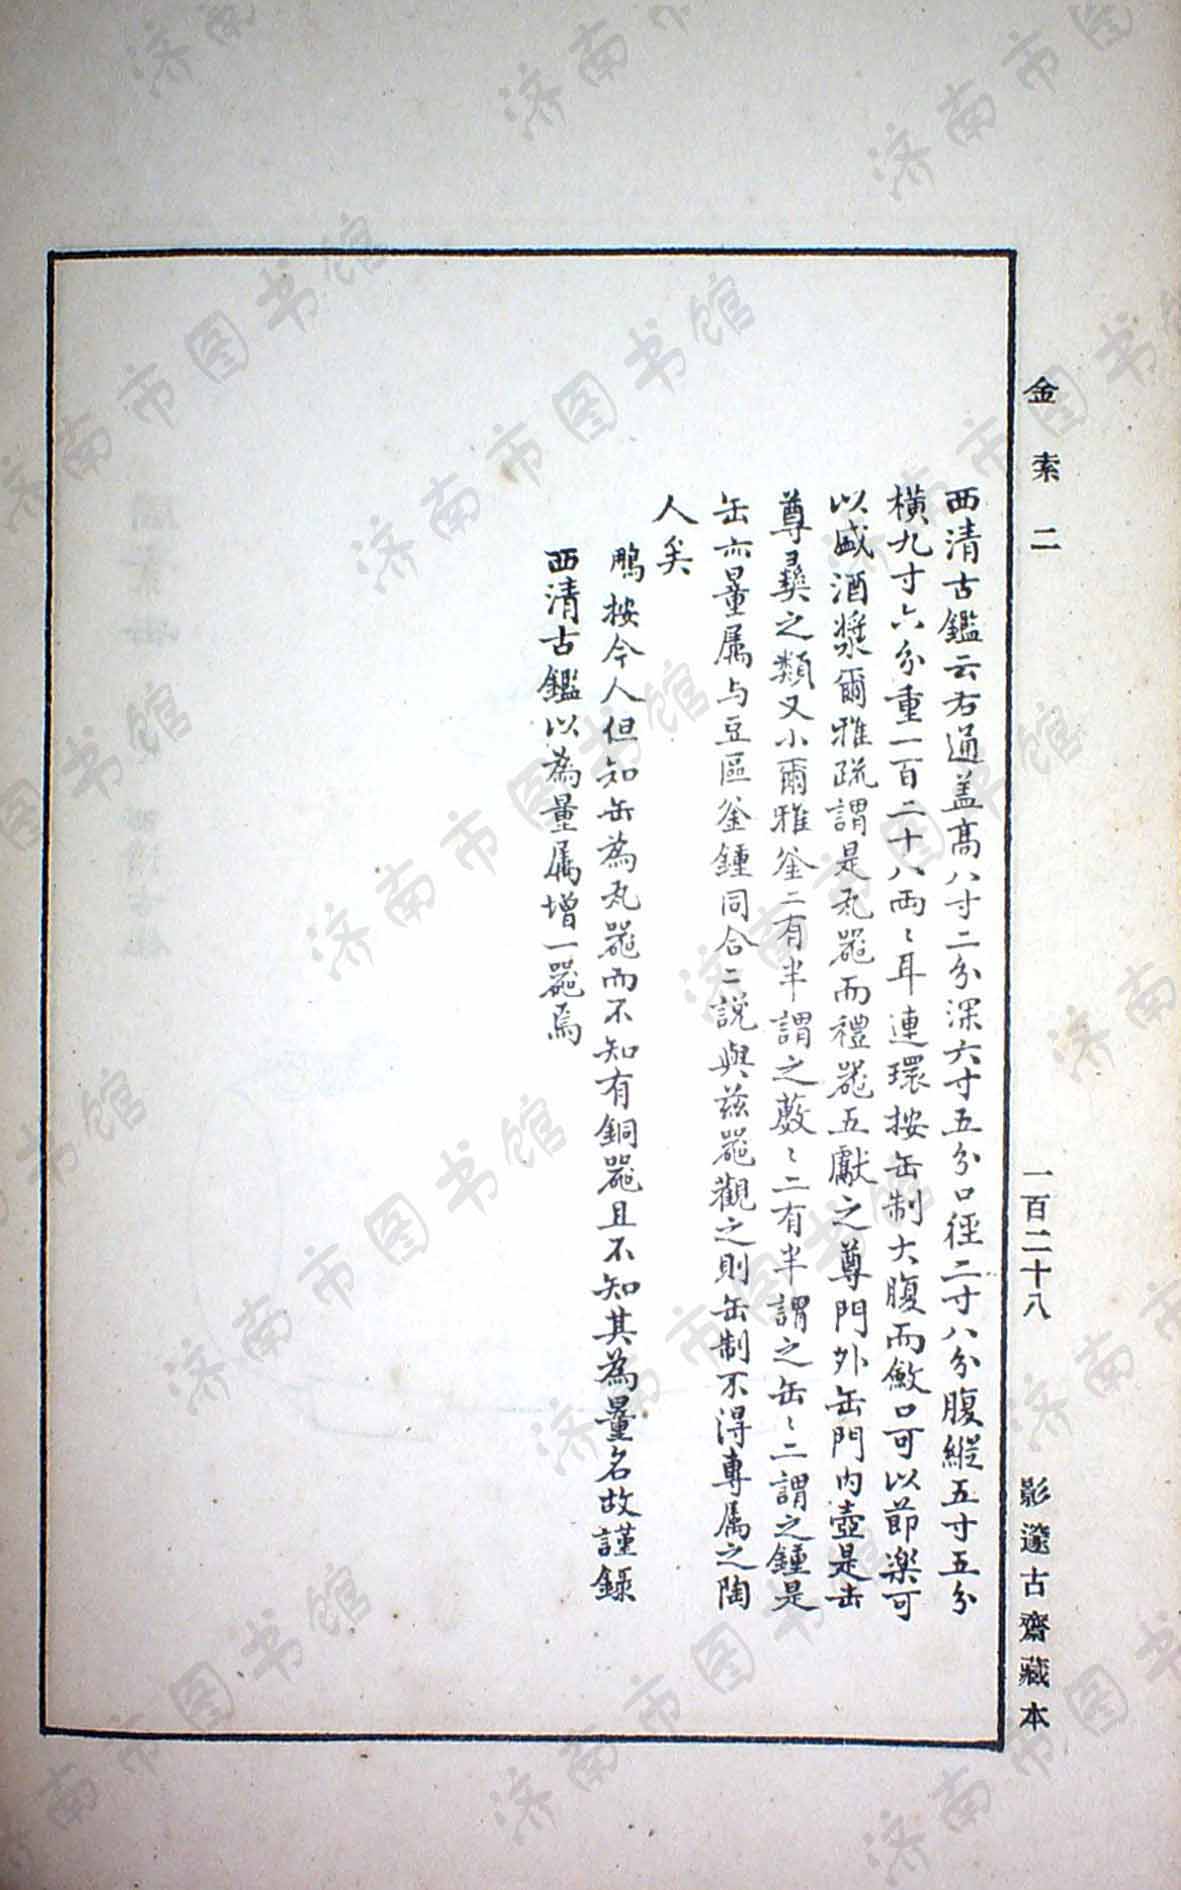 金索二 一百二十八 影邃古齋藏本
西清古鑑云右通盖高八寸二分深六寸五分口徑二寸八分腹縱五寸五分
橫九寸六分重一百二十八兩〻耳連環按缶制大腹而斂口可以節樂可
以盛酒漿爾雅疏謂是瓦器而禮器五獻之尊門外缶門內壺是缶
尊彞之類又小爾雅釜二有半謂之藪〻二有半謂之缶〻二謂之鍾是
缶亦量属与豆區釜鍾同合二說與茲器觀之則缶制不得專属之陶
人矣
鵰按今人但知缶為瓦器而不知有銅器且不知其為量名故謹錄
西清古鑑以為量属增一器焉
济南市图书馆